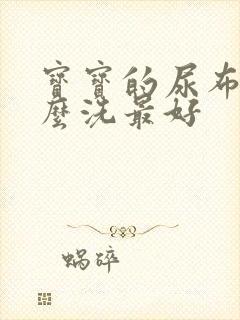 寶寶的尿布
麼洗最好
蝸碎